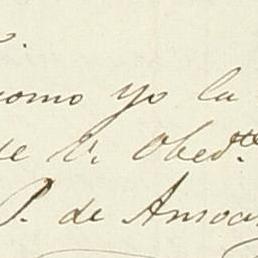 como yo la
de V. Obed.tte
P. de Ansoa